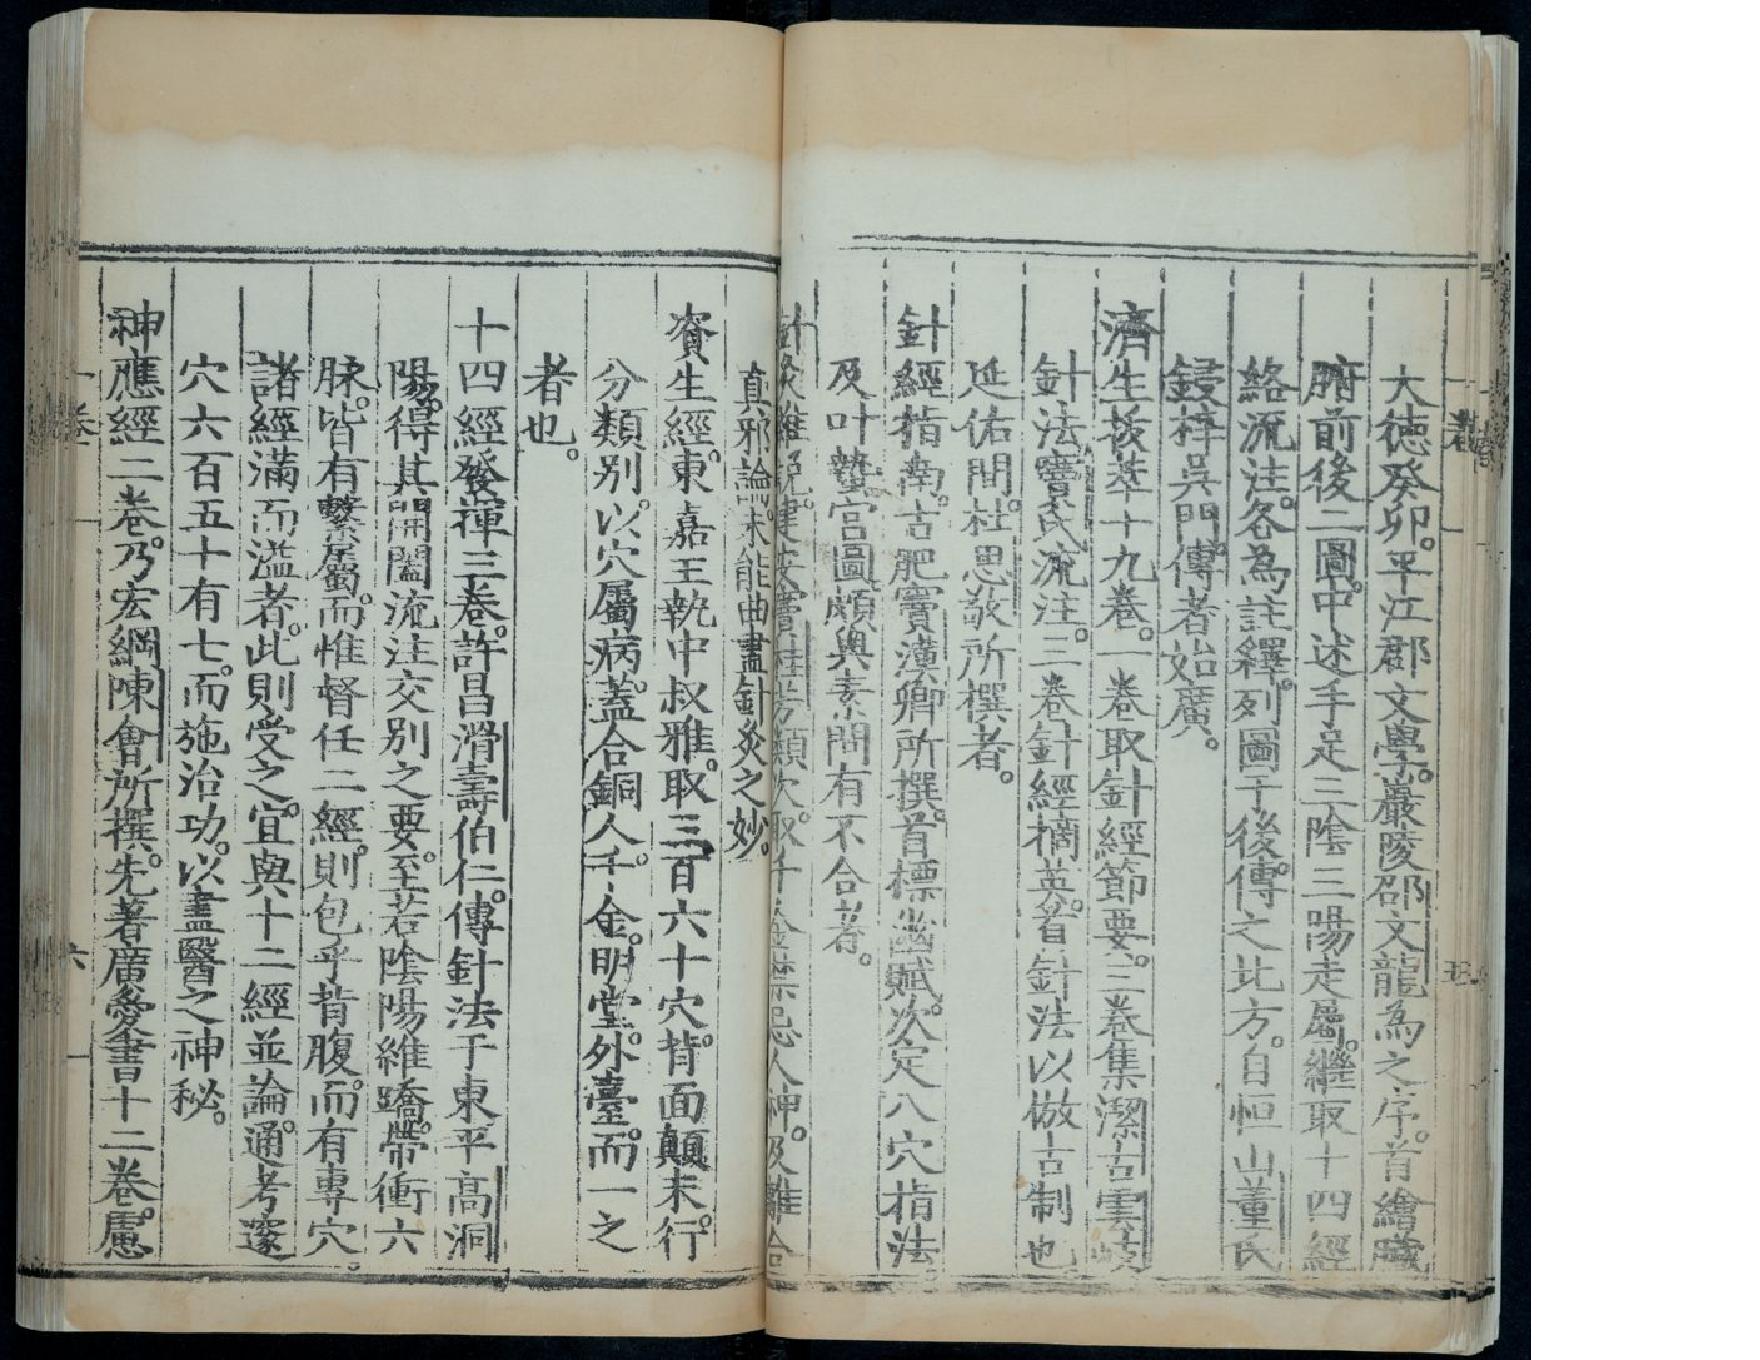 大德癸卯。平江郡文學。嚴陵邵文龍為之序。首繪臟
腑前後二圖。中述手足三陰三陽走屬。繼取十四經
絡流注。各為註釋。列圖于後。傳之北方。自恒山董氏
鋟梓吳門。傳者始廣。
濟生拔萃十九卷。一卷取針經節要。二卷集潔古雲岐
針法竇氏流注。三卷針經摘英。首針法以倣古制也。
延佑間杜思敬所撰者。
針經指南。古肥竇漢卿所撰。首標幽賦。次定八穴指法。
及叶蟄宮圖。頗與素問有不合者。
針灸雜說。建安竇桂芳類次。取千金禁忌人神。及離合
真邪論。未能曲盡針灸之妙。
資生經。東嘉王執中叔雅。取三百六十穴。背面顛末。行
分類別。以穴屬病。蓋合銅人。千金。明堂。外臺。而一之
者也。
十四經發揮三卷。許昌滑壽伯仁。傳針法于東平高洞
陽。得其開闔流注交別之要。至若陰陽維蹻。帶衝六
脉。皆有繫屬。而惟督任二經。則包乎背腹。而有專穴。
諸經滿而溢者。此則受之。宜與十二經並論。通考邃
穴六百五十有七。而施治功。以盡醫之神秘。
神應經二卷。乃宏綱陳會所撰。先著廣愛書十二卷。慮
一卷
六